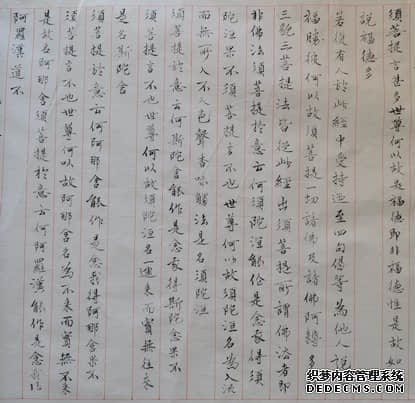 须菩提言甚多世尊何以故是福德即非福德性是故如
说福德多
若复有人於此经中受持乃至四句偈等为他人说
福胜彼何以故须菩提一切诸佛及诸佛阿耨多
三貌三菩提法皆从此经出须菩提所谓佛法者即
非佛法须菩提於意云何须陀洹能作是念我得须
陀洹果不须菩提言不也世尊何以故须陀洹名为入流
而无所入不入色声香味触法是名须陀洹
须菩提於意云何斯陀含能作是念我得斯陀含果不
须菩提言不也世尊何以故斯陀洹名一遍来而实无往来
是名斯陀含
须菩提於意云何阿那含能作是念我得阿那含果不
须菩提言不也世尊何以故阿那含名为不来而实无不来
是故名阿那含须菩提於意云何阿罗汉能作是念我得
阿罗汉道不
实木家具网
www.shimujiaju.com